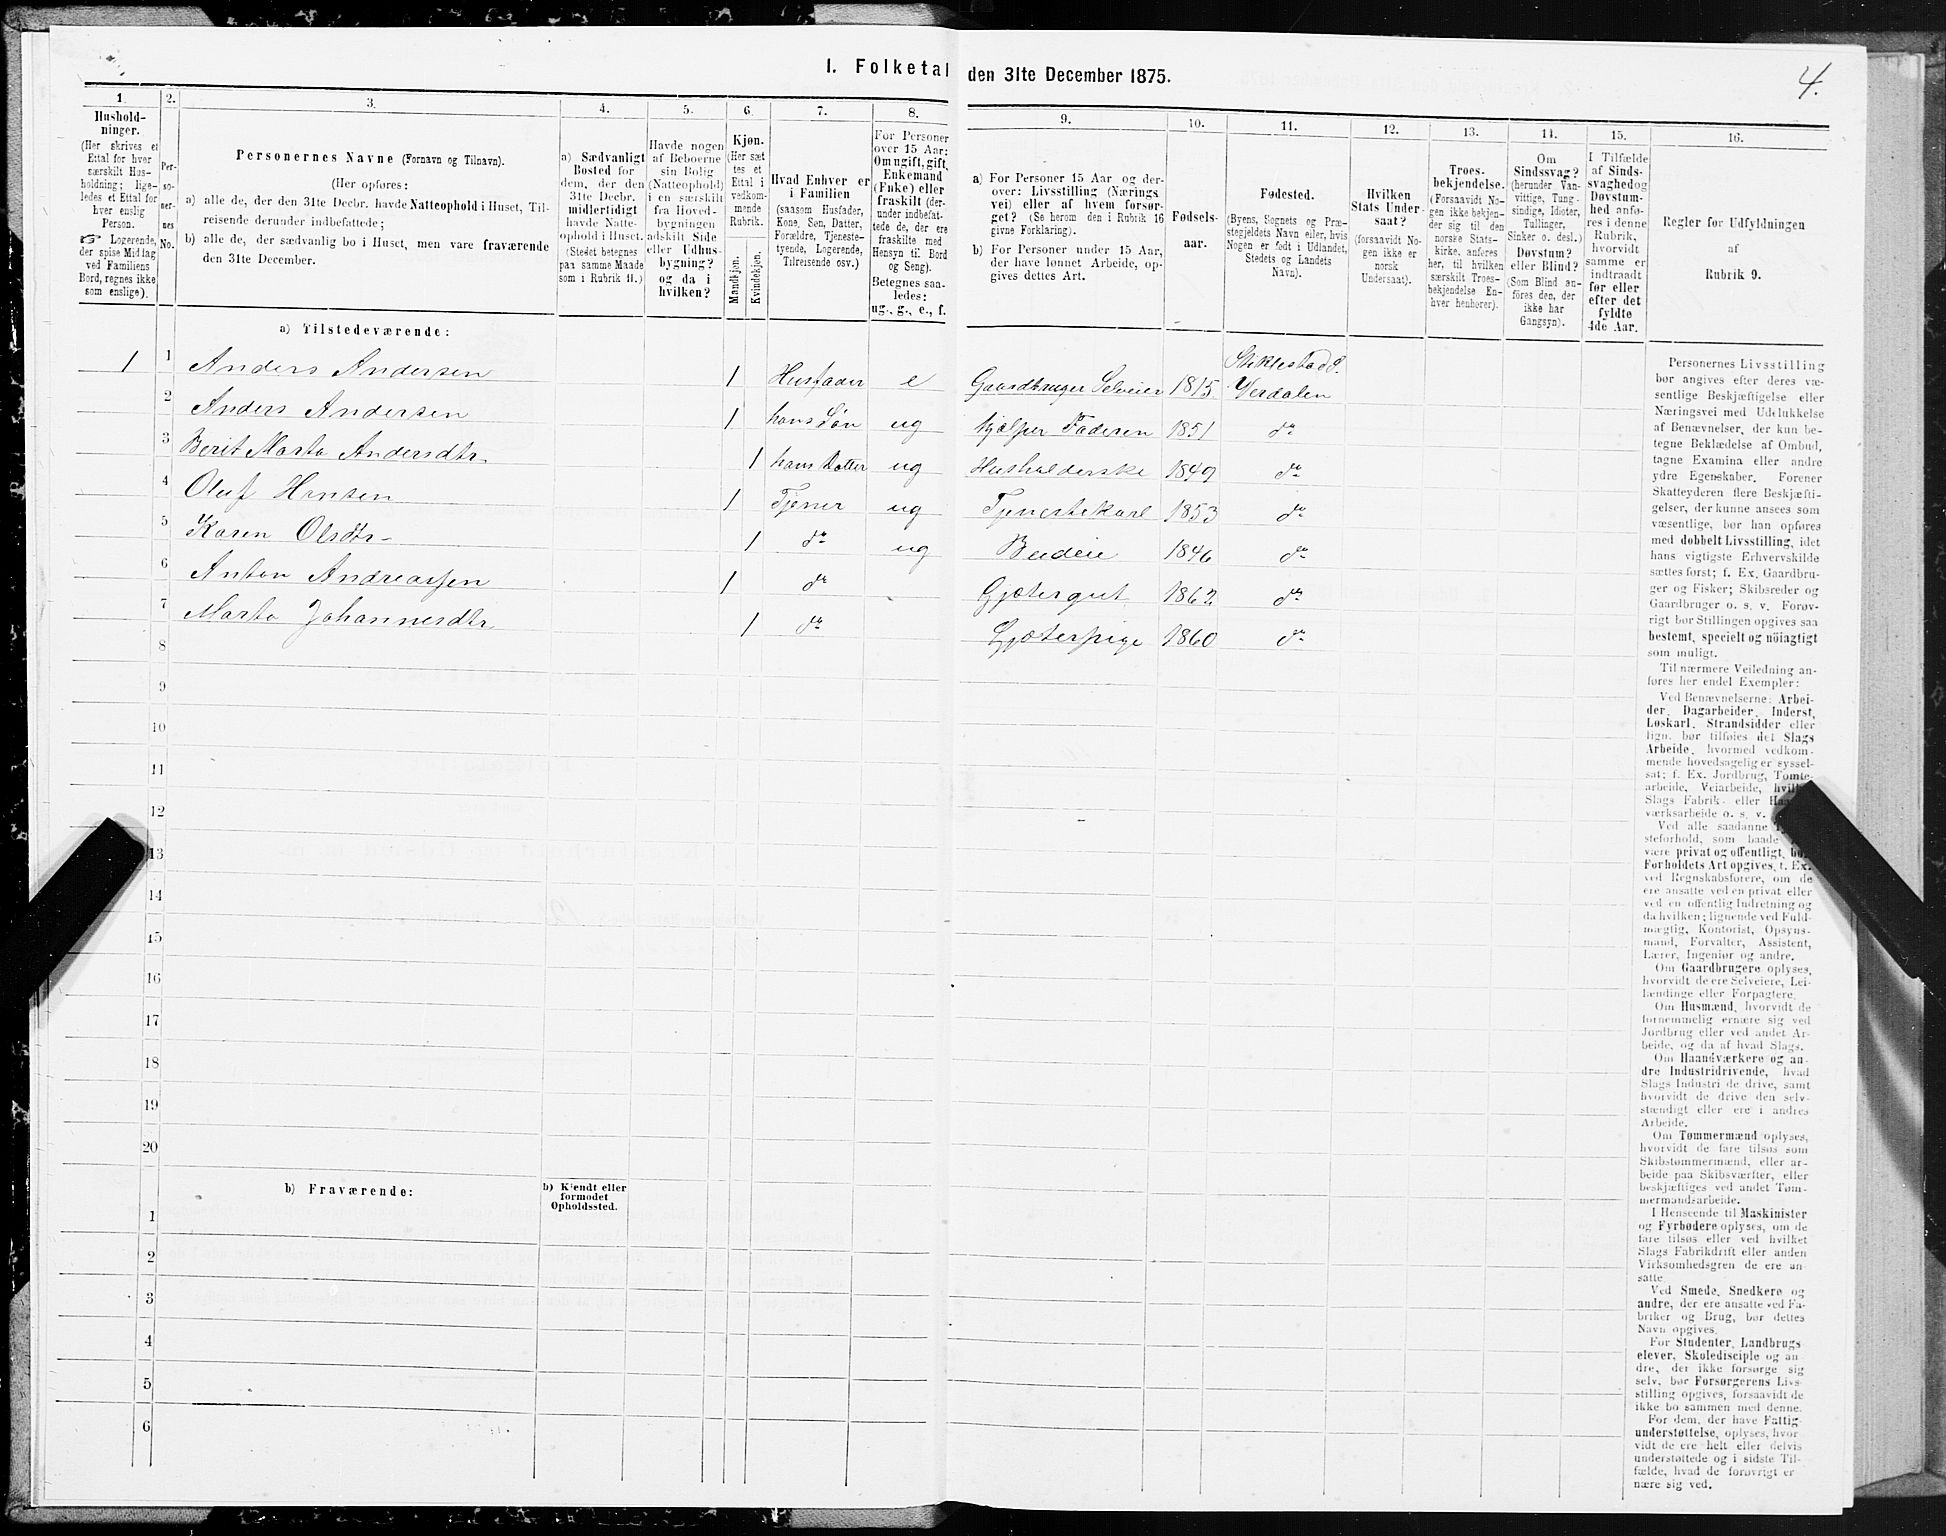 I. Folketal den 31te December 1875.
4.
1.
Hushold-
ninger.
(Her skrives et
Ettal for hver
særskilt Hus-
holdning; lige-
ledes et Ettal for
hver enslig
Person.
☞ Logerende,
der spise Middag
ved Familiens
Bord, regnes ikke
som enslige).
2.
Per-
so-
ner-
nes
No.
3.
Personernes Navne (Fornavn og Tilnavn).
(Her opføres:
a) alle de, der den 31te Decbr. havde Natteophold i Huset, Til-
reisende derunder indbefattede;
b) alle de, der sædvanlig bo i Huset, men vare fraværende
den 31te December.
4.
a) Sædvanligt
Bosted for
dem, der den
31te Decbr.
midlertidigt
havde Natte-
ophold i Huset.
(Stedet betegnes
paa samme Maade
som i Rubrik 11.)
5.
Havde nogen
af Beboerne
sin Bolig
(Natteophold)
i en særskilt
fra Hoved-
bygningen
adskilt Side
eller Udhus-
bygning?
og da i
hvilken?
6.
Kjøn.
(Her sæt
tes et
Ettal i
vedkom-
mende
Rubrik.
Mandkjøn.
Kvindekjøn.
7.
Hvad Enhver er
i Familien
(saasom Husfader,
Kone, Søn, Datter,
Forældre, Tjeneste-
tyende, Logerende,
Tilreisende osv.)
8.
For Personer
over 15 Aar:
Om ugift, gift,
Enkemand
(Enke) eller
fraskilt (der-
under indbefat-
tede de, der ere
fraskilte med
Hensyn til Bord
og Seng).
Betegnes saa-
ledes:
ug., g., e., f.
9.
a) For Personer 15 Aar og der-
over: Livsstilling (Nærings
vei) eller af hvem forsør-
get? (Se herom den i Rubrik 16
givne Forklaring).
b) For Personer under 15 Aar,
der have lønnet Arbeide, op-
gives dettes Art.
10.
Fødsels-
aar.
11.
Fødested.
(Byens, Sognets og Præ-
stegjeldets Navn eller, hvis
Nogen er født i Udlandet,
Stedets og Landets
Navn).
12.
Hvilken
Stats Under-
saat?
(forsaavidt No-
gen ikke er
norsk
Undersaat).
13.
Troes-
bekjendelse.
(Forsaavidt No-
gen ikke bekjen-
der sig til den
norske Stats-
kirke, anføres
her, til hvilken
særskilt Troes-
bekjendelse En-
hver henhører).
14.
Om
Sindssvag?
(herunder Van-
vittige, Tung-
sindige, Idioter,
Tullinger,
Sinker o. desl.)
Døvstum?
eller Blind?
(Som Blind an-
føres den, der
ikke har
Gangsyn).
15.
I Tilfælde
af Sinds-
svaghed og
Døvstum-
hed anfø-
res i denne
Rubrik,
hvorvidt
samme er
indtraadt
før eller
efter det
fyldte
4de Aar.
16.
Regler for Udfyldningen
af
Rubrik 9.
a) Tilstedeværende:
1 1 Anders Andersen 1 Husfader e Gaardbruger Selveier 1815 Stiklestad S. Verdalen
2 Anders Andersen 1 hans Søn ug hjelper Faderen 1851 do
3 Berit Marta Andersdtr. 1 hans Datter ug Husholderske 1849 do
4 Oluf Hansen 1 Tjener ug Tjenestekarl 1853 do
5 Karen Olsdtr 1 do ug Budeie 1846 do
6 Anton Andreassen 1 do Gjætergut 1862 do
7 Marta Johannesdtr 1 do Gjæterpige 1860 do
8
9
10
11
12
13
14
15
16
17
18
19
20
b) Fraværende:
b) Kjendt eller
formodet
Opholdssted.
1
2
3
4
5
6
Personernes Livsstilling
bør angives efter deres væ-
sentlige Beskjæftigelse eller
Næringsvei med Udelukkelse
af Benævnelser, der kun be-
tegne Beklædelse af Ombud,
tagne Examina eller andre
ydre Egenskaber. Forener
Skatteyderen flere Beskjæfti-
gelser, der kunne ansees som
væsentlige, bør han opføres
med dobbelt Livsstilling, idet
hans vigtigste Erhvervskilde
sættes først; f. Ex. Gaardbru-
ger og Fisker; Skibsreder og
Gaardbruger o. s. v. Forøv-
rigt bør Stillingen opgives saa
bestemt, specielt og nöiagtigt
som muligt.
Til nærmere Veiledning an-
føres her endel Exempler:
Ved Benævnelserne: Arbei-
der, Dagarbeider, Inderst,
Løskarl, Strandsidder eller
lign. bør tilføies det Slags
Arbeide, hvormed vedkom-
mende hovedsagelig er syssel-
sat; f. Ex. Jordbrug, Tomte-
arbeide, Veiarbeide, hvil
Slags Fabrik- eller Ha
værksarbeide o. s. v.
Ved alle saadanne
steforhold, som baade
være privat og offentligt, bør
Forholdets Art opgives, f. Ex.
ved Regnskabsførere, om de
ere ansatte ved en privat eller
ved en offentlig Indretning og
da hvilken; lignende ved Fuld-
mægtig, Kontorist, Opsyns-
mand, Forvalter, Assistent,
Lærer, Ingeniør og andre.
Om Gaardbrugere oplyses,
hvorvidt de ere Selveiere, Lei-
lændinge eller Forpagtere.
Om Husmænd, hvorvidt de
fornemmelig ernære sig ved
Jordbrug eller ved andet Ar-
beide, og da af hvad Slags.
Om Haandværkere og an-
dre Industridrivende, hvad
Slags Industri de drive, samt
hvorvidt de drive den selv-
stændigt eller ere i andres
Arbeide.
Om Tømmermænd oplyses,
hvorvidt de fare tilsøs som
Skibstømmermænd, eller ar-
beide paa Skibsværfter, eller
beskjæftiges ved andet Tøm-
mermandsarbeide.
I Henseende til Maskinister
og Fyrbødere oplyses, om de
fare tilsøs eller ved hvilket
Slags Fabrikdrift eller anden
Virksomhedsgren de ere an-
satte.
Ved Smede, Snedkere og
andre, der ere ansatte ved Fa-
briker og Brug, bør dettes
Navn opgives.
For Studenter, Landbrugs
elever, Skoledisciple og an
dre, der ikke forsørge sig
selv, bør Forsørgerens Livs-
stilling opgives, forsaavidt de
ikke bo sammen med denne.
For dem, der have Fattig-
understøttelse, oplyses, hvor
vidt de ere helt eller delvis
understøttede og i sidste Til-
fælde, hvad de forøvrigt er
nære sig ved.